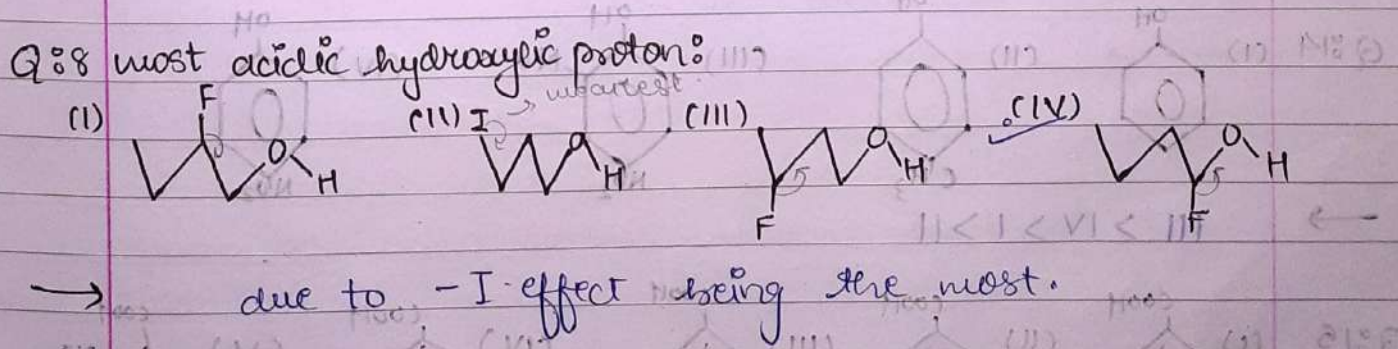 Q:8 most acidic hydroxylic proton:
(I) F O H (II) I → weakest O H (III) F O H (IV) O H F
→ due to -I effect being the most.